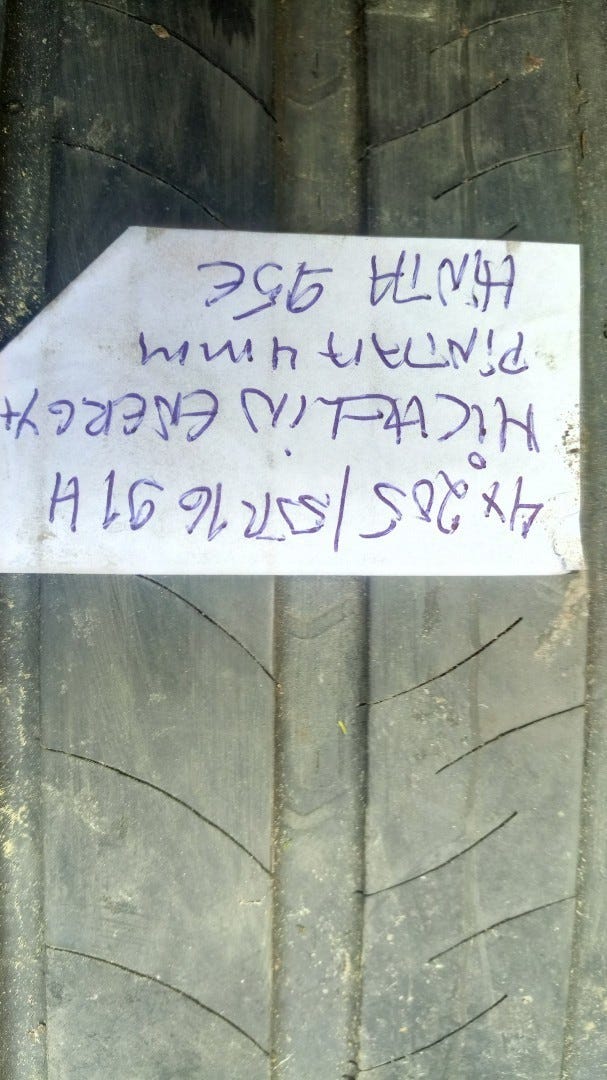 4x205/55R16 91H
MiCHELiN ENERGY+
PiNTAA 4mm
HiNTA 95€